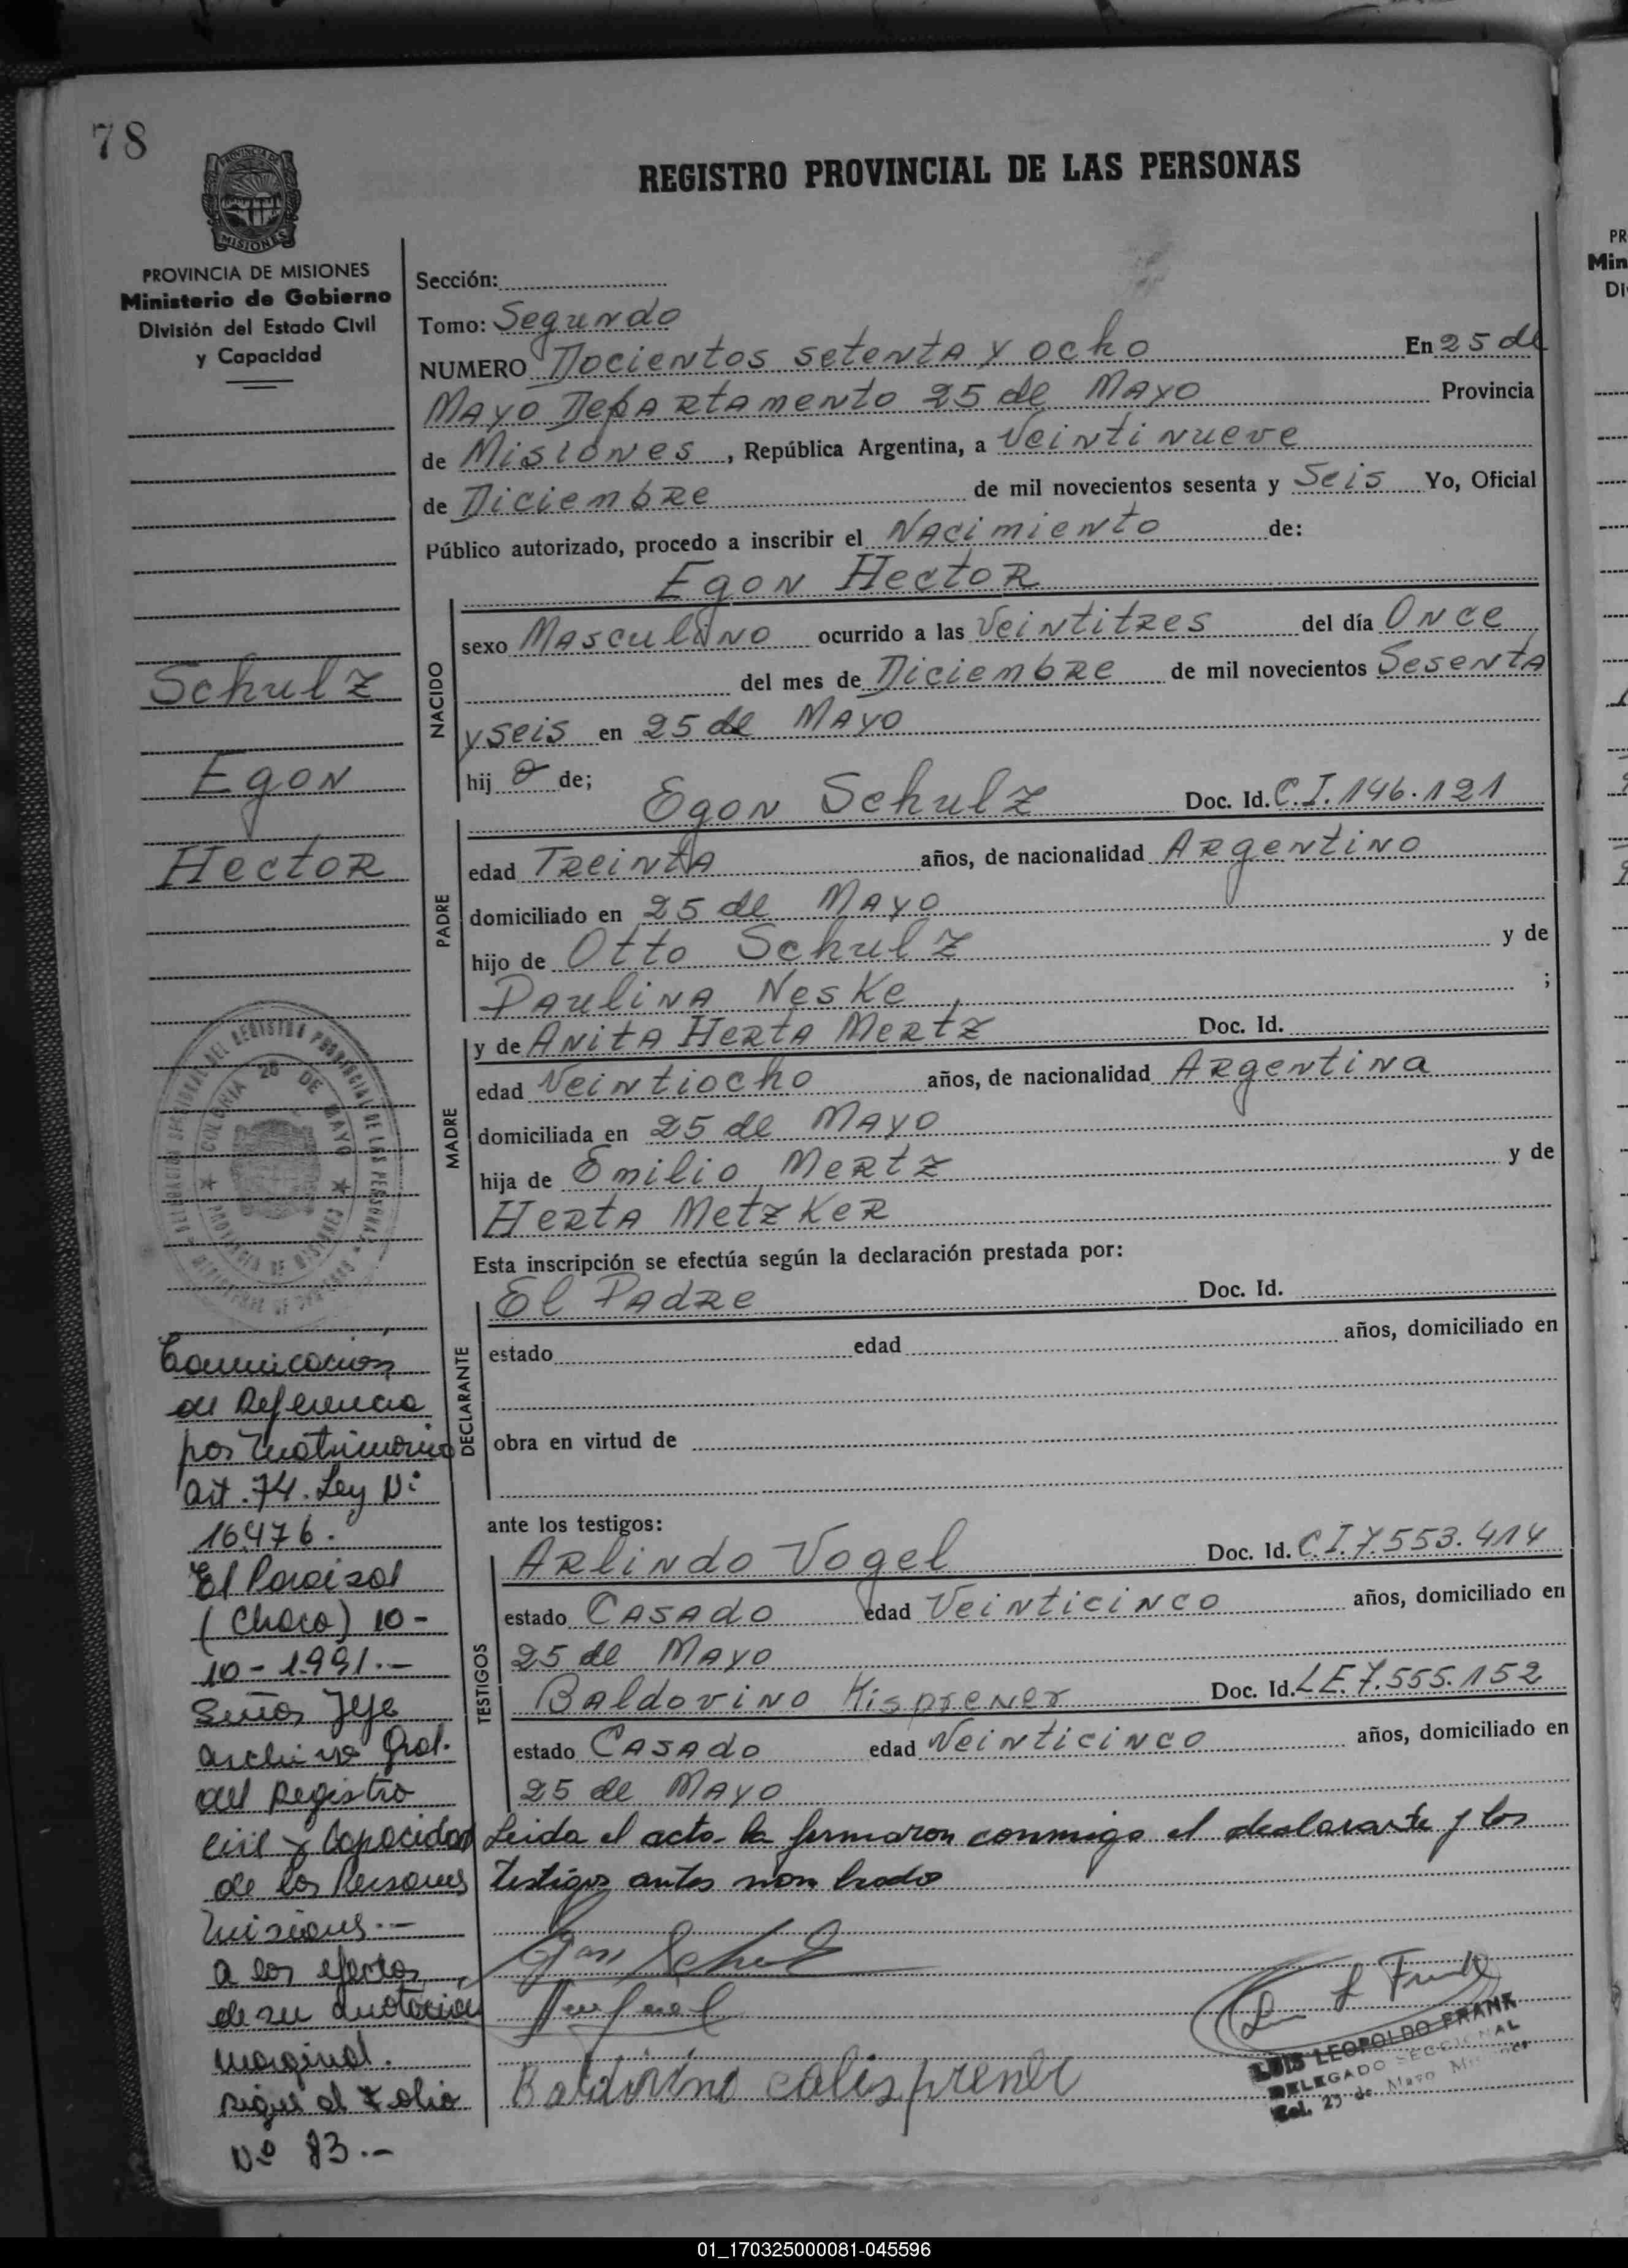 78
REGISTRO PROVINCIAL DE LAS PERSONAS
PROVINCIA DE MISIONES
Ministerio de Gobierno
División del Estado Civil
y Capacidad
Sección:
Tomo: Segundo
NUMERO Docientos setenta y ocho En 25 de
Mayo Departamento 25 de Mayo Provincia
de Misiones, República Argentina, a Veintinueve
de Diciembre de mil novecientos sesenta y Seis Yo, Oficial
Público autorizado, procedo a inscribir el Nacimiento de:
Egon Hector
NACIDO
sexo Masculino ocurrido a las Veintitres del día Once
del mes de Diciembre de mil novecientos Sesenta
y seis en 25 de Mayo
hijo de;
PADRE
Egon Schulz Doc. Id. C.I. 146.121
edad Treinta años, de nacionalidad Argentino
domiciliado en 25 de Mayo
hijo de Otto Schulz y de
Paulina Neske ;
MADRE
y de Anita Herta Mertz Doc. Id.
edad Veintiocho años, de nacionalidad Argentina
domiciliada en 25 de Mayo
hija de Emilio Mertz y de
Herta Metzker
Esta inscripción se efectúa según la declaración prestada por:
DECLARANTE
El Padre Doc. Id.
estado edad años, domiciliado en
obra en virtud de
ante los testigos:
TESTIGOS
Arlindo Vogel Doc. Id. C.I. 7.553.414
estado Casado edad Veinticinco años, domiciliado en
25 de Mayo
Baldovino Kisprener Doc. Id. L.E. 7.555.152
estado Casado edad Veinticinco años, domiciliado en
25 de Mayo
Leida el acta la firmaron conmigo el declarante y los
testigos antes nombrado
Egon Schulz
Baldivino
LUIS LEOPOLDO FRANK
DELEGADO SECCIONAL
Col. 25 de Mayo Misiones
Schulz
Egon
Hector
DELEGACION SECCIONAL DEL REGISTRO PROVINCIAL DE LAS PERSONAS
COLONIA 25 DE MAYO
PROVINCIA DE MISIONES
Comunicacion
de Referencia
por Matrimonio
Art. 74. Ley Nº
16476.
El Paraisal
(Chaco) 10-
10-1.991.-
Señor Jefe
archivo Gral.
del Registro
civil y Capacidad
de las Personas
Misiones.-
a los efectos
de su anotación
marginal.
sigue al Folio
Nº 83.-
PR
Min
Di
01_170325000081-045596